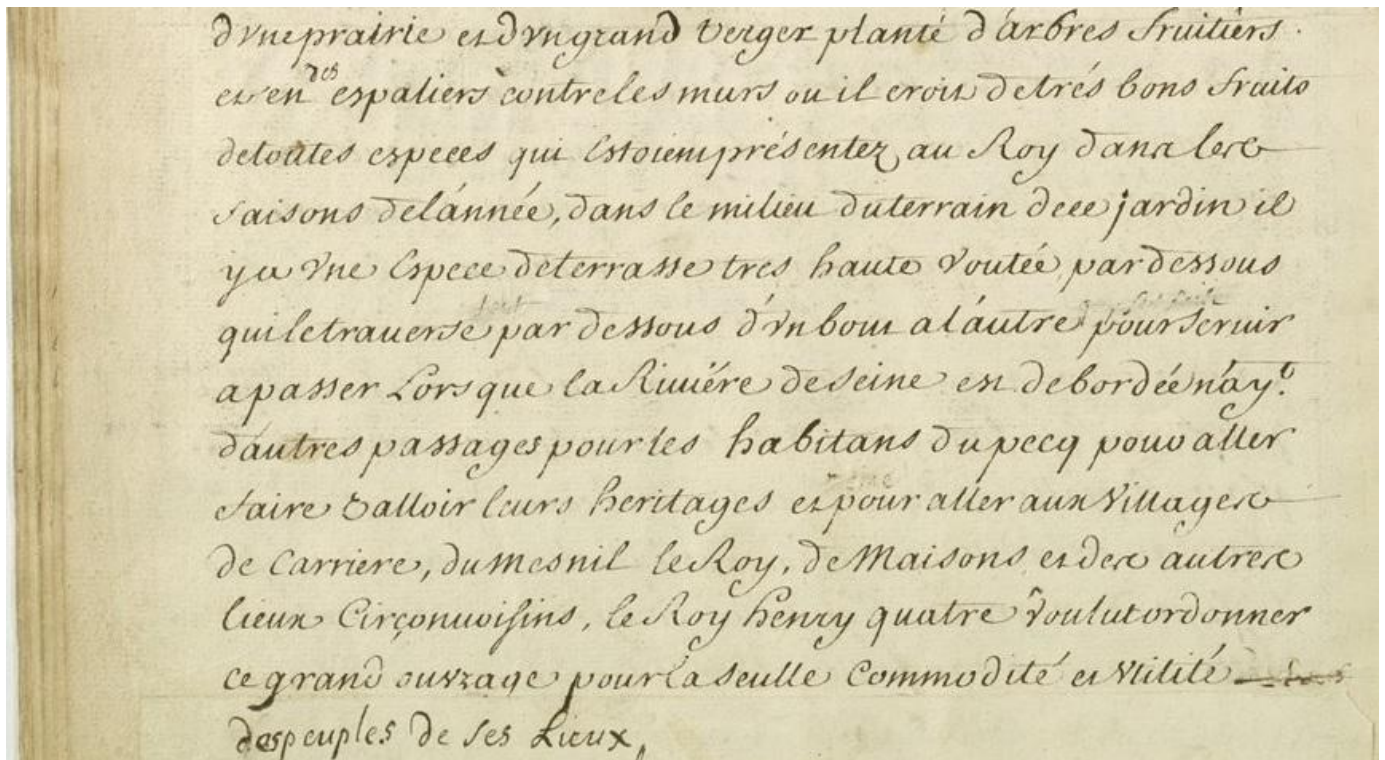 d'vne prairie et d'vn grand verger planté d'arbres fruitiers.
et en des espaliers contre les murs ou il croit de trés bons fruits
de toutes especes qui Estoient présentez au Roy dans les
saisons de l'année, dans le milieu du terrain de ce jardin il
y a vne Espece de terrasse tres haute voutée par dessous
qui le trauerse par dessous d'vn bout a l'autre pour seruir
a passer Lorsque la Riuiére de seine est debordée n'ay.t
d'autres passages pour les habitans du pecq pour aller
faire valloir leurs heritages et pour aller aux villages
de Carriere, du mesnil le Roy, de Maisons et des autres
lieux Circonuoisins, le Roy henry quatre voulut ordonner
ce grand ouvrage pour la seulle Commodité et vtilité
des peuples de ses Lieux,